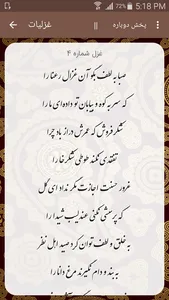 72% 5:18 PM
پخش دوباره || غزلیات
غزل شماره ۴
صبا به لطف بگو آن غزال رعنا را
که سر به کوه و بیابان تو داده‌ای ما را
شکرفروش که عمرش دراز باد چرا
تفقدی نکند طوطی شکرخا را
غرور حسنت اجازت مگر نداد ای گل
که پرسشی نکنی عندلیب شیدا را
به خلق و لطف توان کرد صید اهل نظر
به بند و دام نگیرند مرغ دانا را